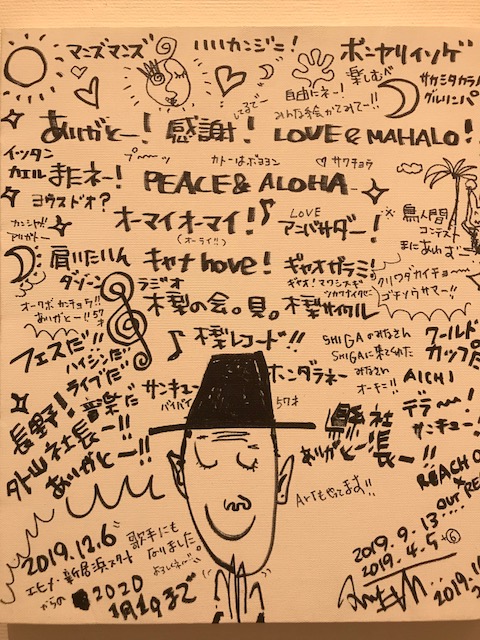 マニズマンズ
いいカンジニ！
ボンヤリイソゲ
楽しむべ
自由にネー！
みんな絵かてみてー!!
してるで
サカミタカラ
グルリンパ
ありがとー！ 感謝！ LOVE & MAHALO！
イッタン
カエル またネー！
カトーはボヨヨン
♡サクチョラ
PEACE & ALOHA
ヨウスドオ？
オーマイオーマイ！♪
(オーライ!!)
LOVE
アニバサダー！
鳥人間
コンテスト
まにあわず
カンシャ!!
アルガトー
肩いたいん
ダゾーン
キャナ hove！
ギャオザラミ！
ギャオ！マワシスギ
クリワダカイチョー
ゴチソウサマー!!
オークボカンチョウ!!
ありがとー!! 57才
ラジオ
木梨の会。貝。 木梨サイクル
♪木梨レコード!!
フェスだ!!
ハイジンだ!!
ライブだ
音楽だ
SHIGAのみなさん
SHIGAに来てくれた
みなさん
オーキニ!!
ワールド
カップだ
AICHI
デラー！
サンキュー！
サンキュー
バイバイ
ホンダラネー
57才
長野！
外山社長ー!!
ありがとー!!
社長ー!!
ありがとー
ARTもやってます!!
REACH O
OUT RE
2019.12.6
エヒメ・新居浜スタート
からの
2020
1月19まで
歌手にも
なりました
よろしくネー。
2019.9.13....
2019.4.5
2019.1